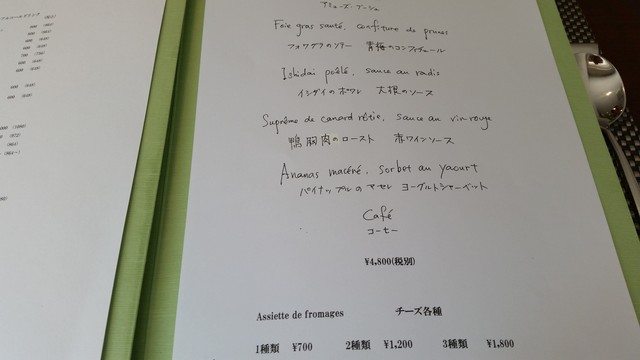 アミューズ・ブーシュ
Foie gras sauté, confiture de prunes
フォワグラのソテー 青梅のコンフィチュール
Ishidai poêlé, sauce au radis
イシダイのポワレ 大根のソース
Suprême de canard rôtie, sauce au vin rouge
鴨胸肉のロースト 赤ワインソース
Ananas macéré, sorbet au yaourt
パイナップルのマセレ ヨーグルトシャーベット
Café
コーヒー
¥4,800(税別)
Assiette de fromages チーズ各種
1種類 ¥700 2種類 ¥1,200 3種類 ¥1,800